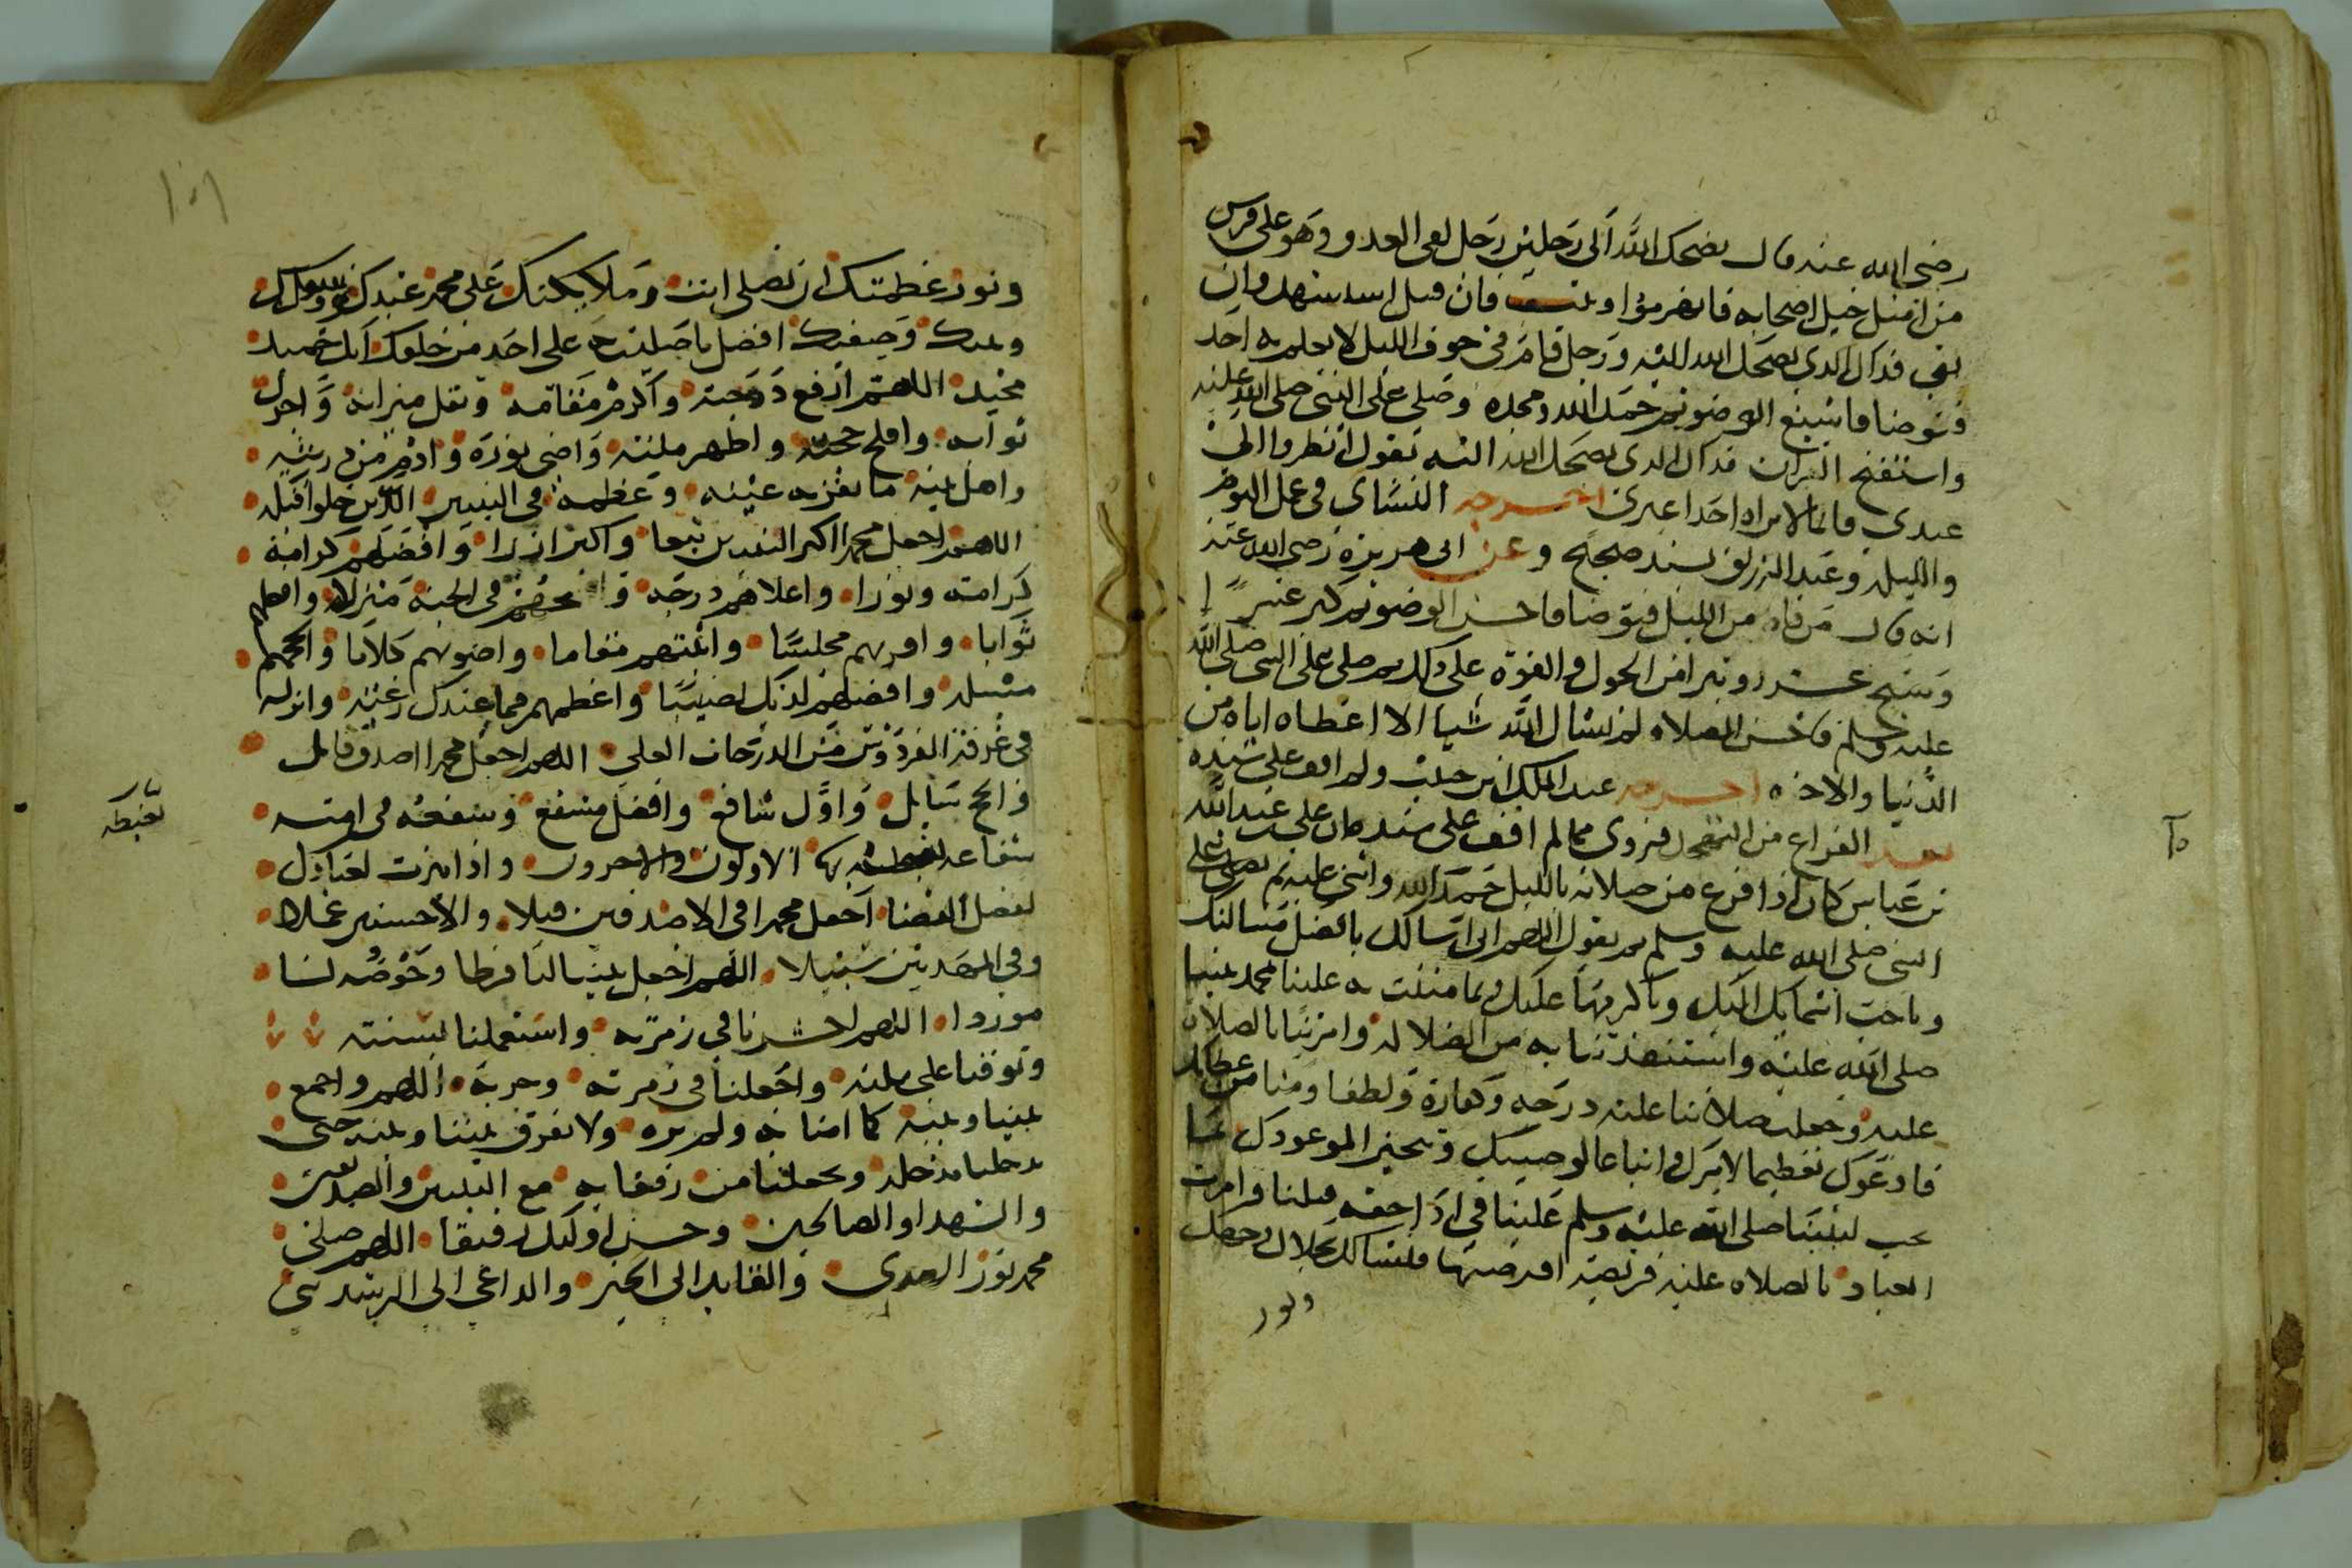 رضي الله عنه قال يضحك الله الى رجلين رجل لقي العدو وهو على فرس
من امثل خيل اصحابه فانهزموا وثبت فان قتل استشهد وان
بقي فذاك الذي يضحك الله اليه ورجل قام في جوف الليل لا يعلم به احد
فتوضا فاسبغ الوضو ثم حمد الله ومجده وصلى على النبي صلى الله عليه
واستفتح القران فذاك الذي يضحك الله اليه يقول انظروا الى
عبدي قائما لا يراه احدا غيري اخرجه النسائي في عمل اليوم
والليلة وعبد الرزاق بسند صحيح وعن ابي هريرة رضي الله عنه
انه قال من قام من الليل فتوضا فاحسن الوضو ثم كبر عشرا
وسبح عشرا وتبرا من الحول والقوة على ذلك ثم صلى على النبي صلى الله
عليه وسلم فاحسن الصلاة لم يسال الله شيا الا اعطاه اياه من
الدنيا والاخرة اخرجه عبد الملك ابن حبيب ولم اقف على سنده
بعد الفراغ من التهجد فروي مما لم اقف على سنده كان علي بن عبد الله
بن عباس كان اذا فرغ من صلاته بالليل حمد الله واثنى عليه ثم يصلي على
النبي صلى الله عليه وسلم ثم يقول اللهم اني اسالك بافضل مسالتك
وباحب اسمايك اليك وباكرمها عليك وبما مننت به علينا محمد نبينا
صلى الله عليه واستنقذتنا به من الضلالة وامرتنا بالصلاة
عليه وجعلت صلاتنا عليه درجة وكفارة ولطفا ومنا من عطائك
فادعوك تعظيما لامرك واتباعا لوصيتك وتنجيز الموعودك لما
يجب لنبينا صلى الله عليه وسلم علينا في اداء حقه قبلنا وامرت
العباد بالصلاة عليه فريضة افترضتها فنسالك بجلال وجهك
ونور
ونور عظمتك ان تصلي انت وملايكتك على محمد عبدك ورسولك
ونبيك وصفيك افضل ما صليت على احد من خلقك انك حميد
مجيد اللهم ارفع درجته واكرم مقامه وثقل ميزانه واجزل
ثوابه وافلح حجته واظهر ملته واضي نوره وادم من ذريته
واهل بيته ما تقر به عينه وعظمه في النبيين الذين خلوا قبله
اللهم اجعل محمدا اكثر النبيين تبعا واكثر ازرا وافضلهم كرامة
كرامة ونورا واعلاهم درجة وافسحهم في الجنة منزلا وافضلهم
ثوابا واقربهم مجلسا واثبتهم مقاما واصوبهم كلاما وانجحهم
مسلة وافضلهم لديك نصيبا واعظمهم فيما عندك رغبة وانزله
في غرفة الفردوس من الدرجات العلى اللهم اجعل محمدا اصدق قايل
وانجح سايل واول شافع وافضل مشفع وشفعه في امته
شفاعة يغبطه بها الاولون والاخرون واذا ميزت لعبادك
لفصل القضا اجعل محمدا في الاصدقين قيلا والاحسنين عملا
وفي المهديين سبيلا اللهم اجعل نبينا لنا فرطا وحوضه لنا
موردا اللهم احشرنا في زمرته واستعملنا بسنته
وتوفنا على ملته واجعلنا في زمرته وحزبه اللهم واجمع
بيننا وبينه كما امنا به ولم نره ولا تفرق بيننا وبينه حتى
تدخلنا مدخله وتجعلنا من رفقايه مع النبيين والصديقين
والشهدا والصالحين وحسن اولئك رفيقا اللهم صل على
محمد نور الهدى والقايد الى الخير والداعي الى الرشد نبي
يغبطه